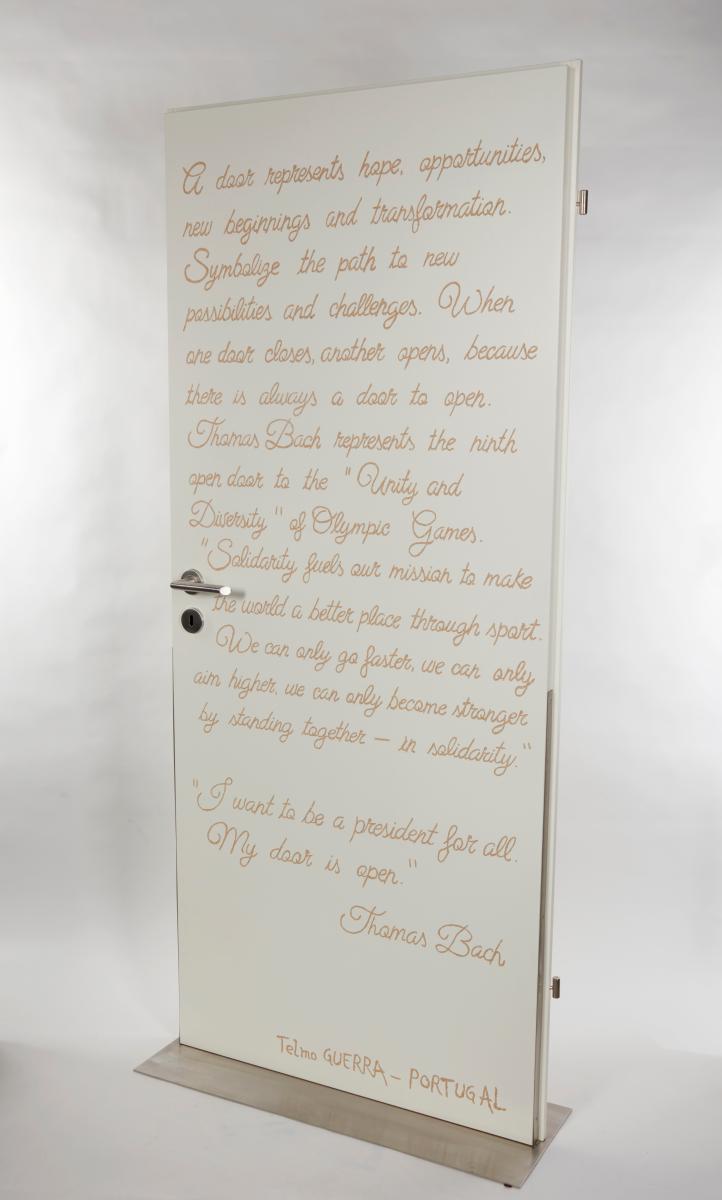 A door represents hope, opportunities,
new beginnings and transformation.
Symbolize the path to new
possibilities and challenges. When
one door closes, another opens, because
there is always a door to open.
Thomas Bach represents the ninth
open door to the "Unity and
Diversity" of Olympic Games.
"Solidarity fuels our mission to make
the world a better place through sport.
We can only go faster, we can only
aim higher, we can only become stronger
by standing together – in solidarity."
"I want to be a president for all.
My door is open."
Thomas Bach
Telmo GUERRA – PORTUGAL